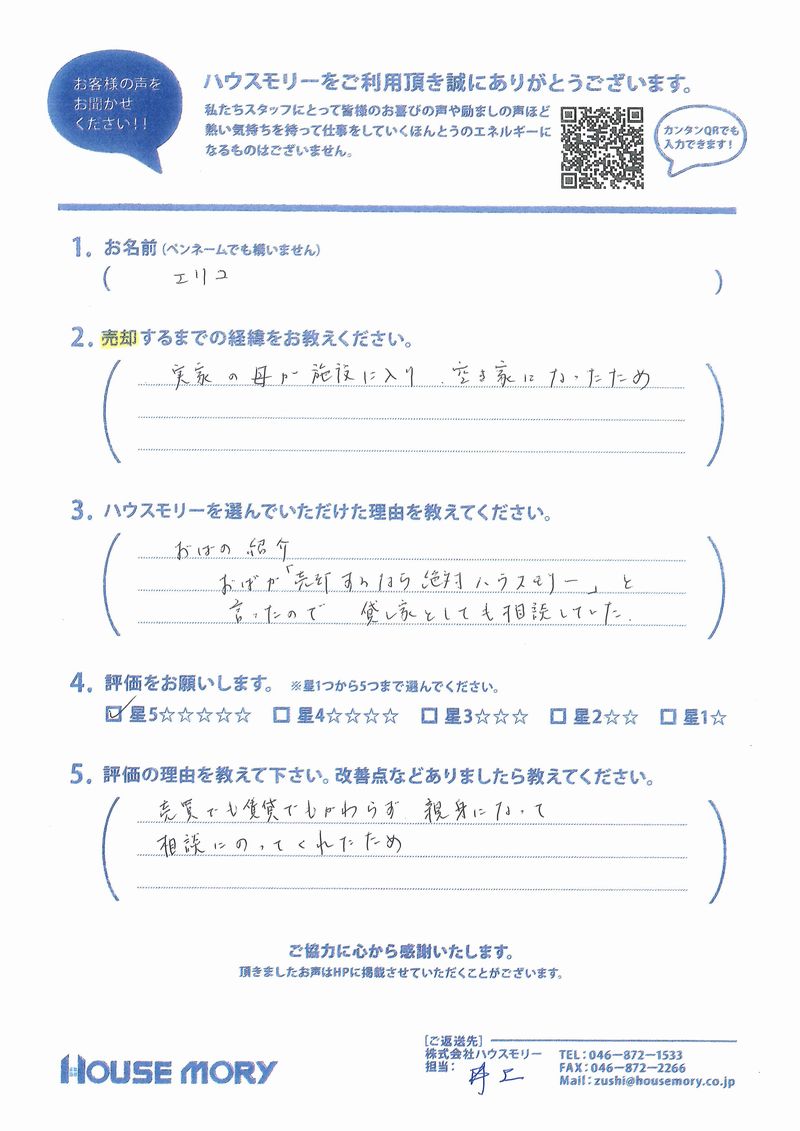 お客様の声を
お聞かせ
ください!!
ハウスモリーをご利用頂き誠にありがとうございます。
私たちスタッフにとって皆様のお喜びの声や励ましの声ほど
熱い気持ちを持って仕事をしていくほんとうのエネルギーに
なるものはございません。
カンタンQRでも
入力できます!
1. お名前(ペンネームでも構いません)
( エリコ )
2. 売却するまでの経緯をお教えください。
実家の母が施設に入り、空き家になったため
3. ハウスモリーを選んでいただけた理由を教えてください。
おばの紹介
おばが「売却するなら絶対ハウスモリー」と
言ったので 貸し家としても相談していた.
4. 評価をお願いします。 ※星1つから5つまで選んでください。
☑星5☆☆☆☆☆ □星4☆☆☆☆ □星3☆☆☆ □星2☆☆ □星1☆
5. 評価の理由を教えて下さい。改善点などありましたら教えてください。
売買でも賃貸でもかわらず 親身になって
相談にのってくれたため
ご協力に心から感謝いたします。
頂きましたお声はHPに掲載させていただくことがございます。
HOUSE MORY
[ご返送先]
株式会社ハウスモリー TEL:046-872-1533
担当: FAX:046-872-2266
Mail:zushi@housemory.co.jp